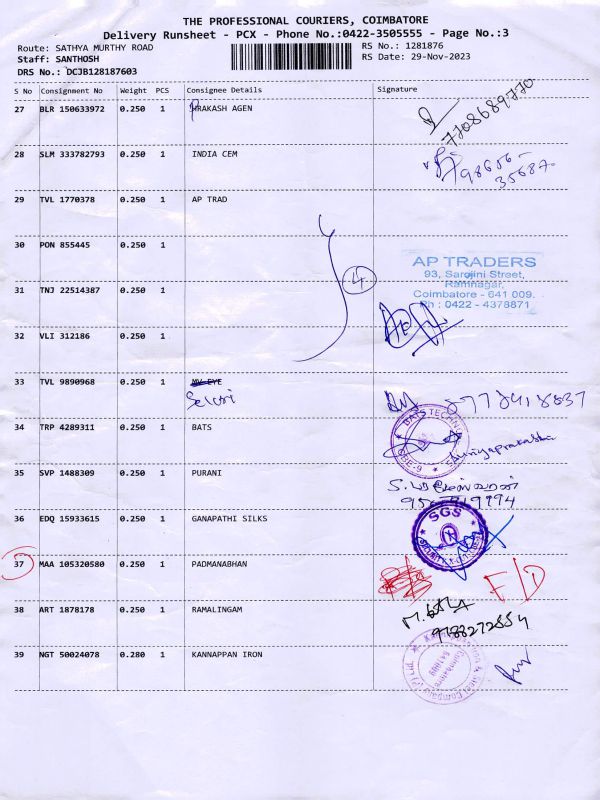 THE PROFESSIONAL COURIERS, COIMBATORE
Delivery Runsheet - PCX - Phone No.:0422-3505555 - Page No.:3
Route: SATHYA MURTHY ROAD
RS No.: 1281876
Staff: SANTHOSH
RS Date: 29-Nov-2023
DRS No.: DCJB128187603
S No Consignment No Weight PCS Consignee Details Signature
27 BLR 150633972 0.250 1 PRAKASH AGEN
7708689770
28 SLM 333782793 0.250 1 INDIA CEM
98656-
35687
29 TVL 1770378 0.250 1 AP TRAD
30 PON 855445 0.250 1
4
AP TRADERS
93, Sarojini Street,
Ramnagar,
Coimbatore - 641 009.
Ph : 0422 - 4378871
31 TNJ 22514387 0.250 1
32 VLI 312186 0.250 1
33 TVL 9890968 0.250 1 MV EYE
Selvi
34 TRP 4289311 0.250 1 BATS
BATS TECHN
CBE-9
35 SVP 1488309 0.250 1 PURANI
36 EDQ 15933615 0.250 1 GANAPATHI SILKS
SGS
37 MAA 105320580 0.250 1 PADMANABHAN
F/D
38 ART 1878178 0.250 1 RAMALINGAM
39 NGT 50024078 0.280 1 KANNAPPAN IRON
Steel Company (P) Ltd
Coimbatore